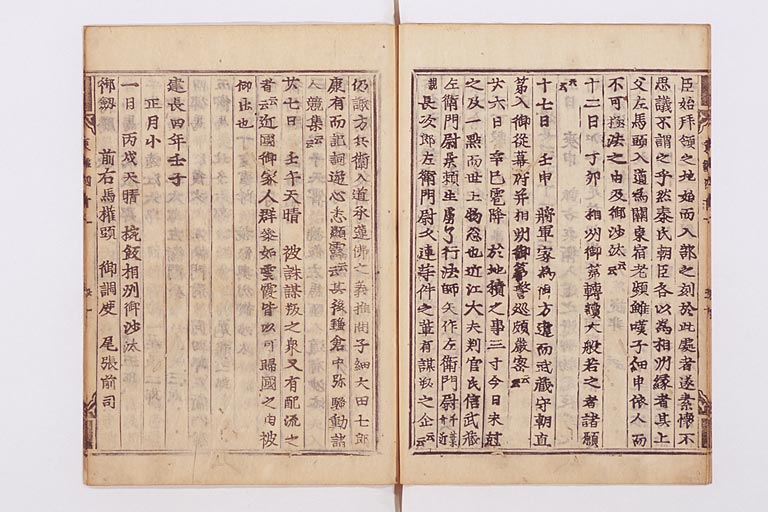 臣始拜領之地始而入部之刻於此處者遂素懷不
思議不謂之乎然泰氏朝臣各以為相州縁者其上
父左馬頭入道為關東宿老頻雖嘆子細申依人而
不可極法之由及御沙汰云云
十二日 丁卯 相州御第轉讀大般若之者諸願云云
十七日 壬申 將軍家為御方違而武藏守朝直
第入御從幕府并相州御第警巡頗嚴密云云
廿六日 辛巳 雹降 於地積之事三寸今日未尅
之及一點而世上物忩也近江大夫判官氏信武藏
左衛門尉景頼生虜了行法師矢作左衛門尉千葉介近親
長次郎左衛門尉久連等件之輩有謀叛之企云云
仍諏方兵衛入道承蓮佛之義推問子細大田七郎
康有而記詞逆心志顯露云云其後鎌倉中弥騷動諸
人競集云云
廿七日 壬午天晴 被誅謀叛之衆又有配流之
者云云近國御家人群參如雲霞皆以可歸國之由被
仰出也
建長四年壬子
正月小
一日丙戌天晴 埦飯相州御沙汰
御劔 前右馬權頭 御調度 尾張前司